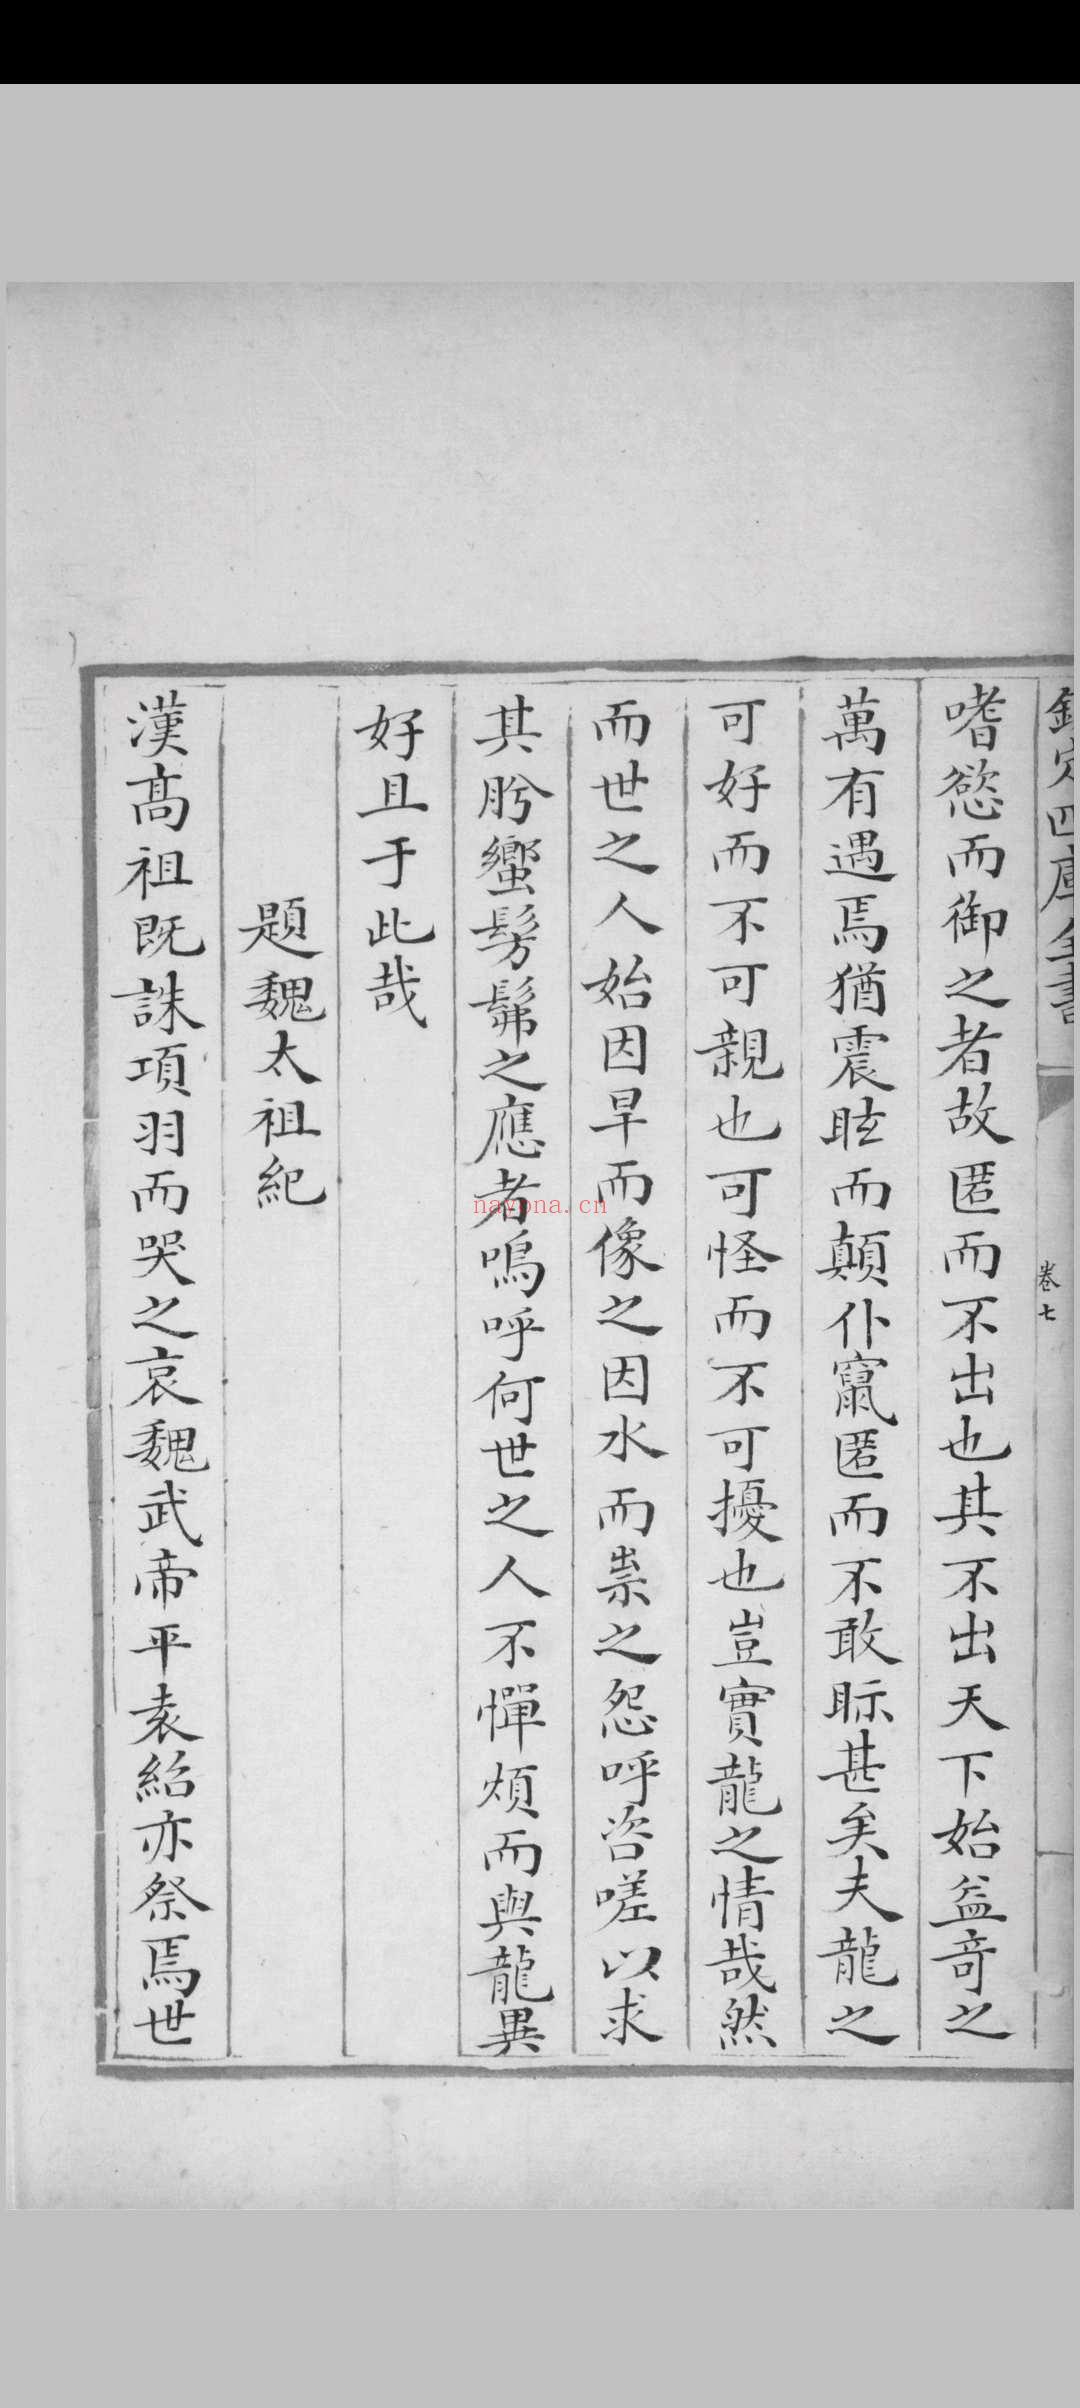 欽定四庫全書
卷七
嗜慾而御之者故匿而不出也其不出天下始益竒之
萬有遇焉猶震眩而顛仆竄匿而不敢眎甚矣夫龍之
可好而不可親也可怪而不可擾也豈實龍之情哉然
而世之人始因旱而像之因水而祟之怨呼咨嗟以求
其肸蠁髣髴之應者嗚呼何世之人不憚煩而與龍異
好且于此哉
題魏太祖紀
漢髙祖既誅項羽而哭之哀魏武帝平袁紹亦祭焉世
nayona.cn